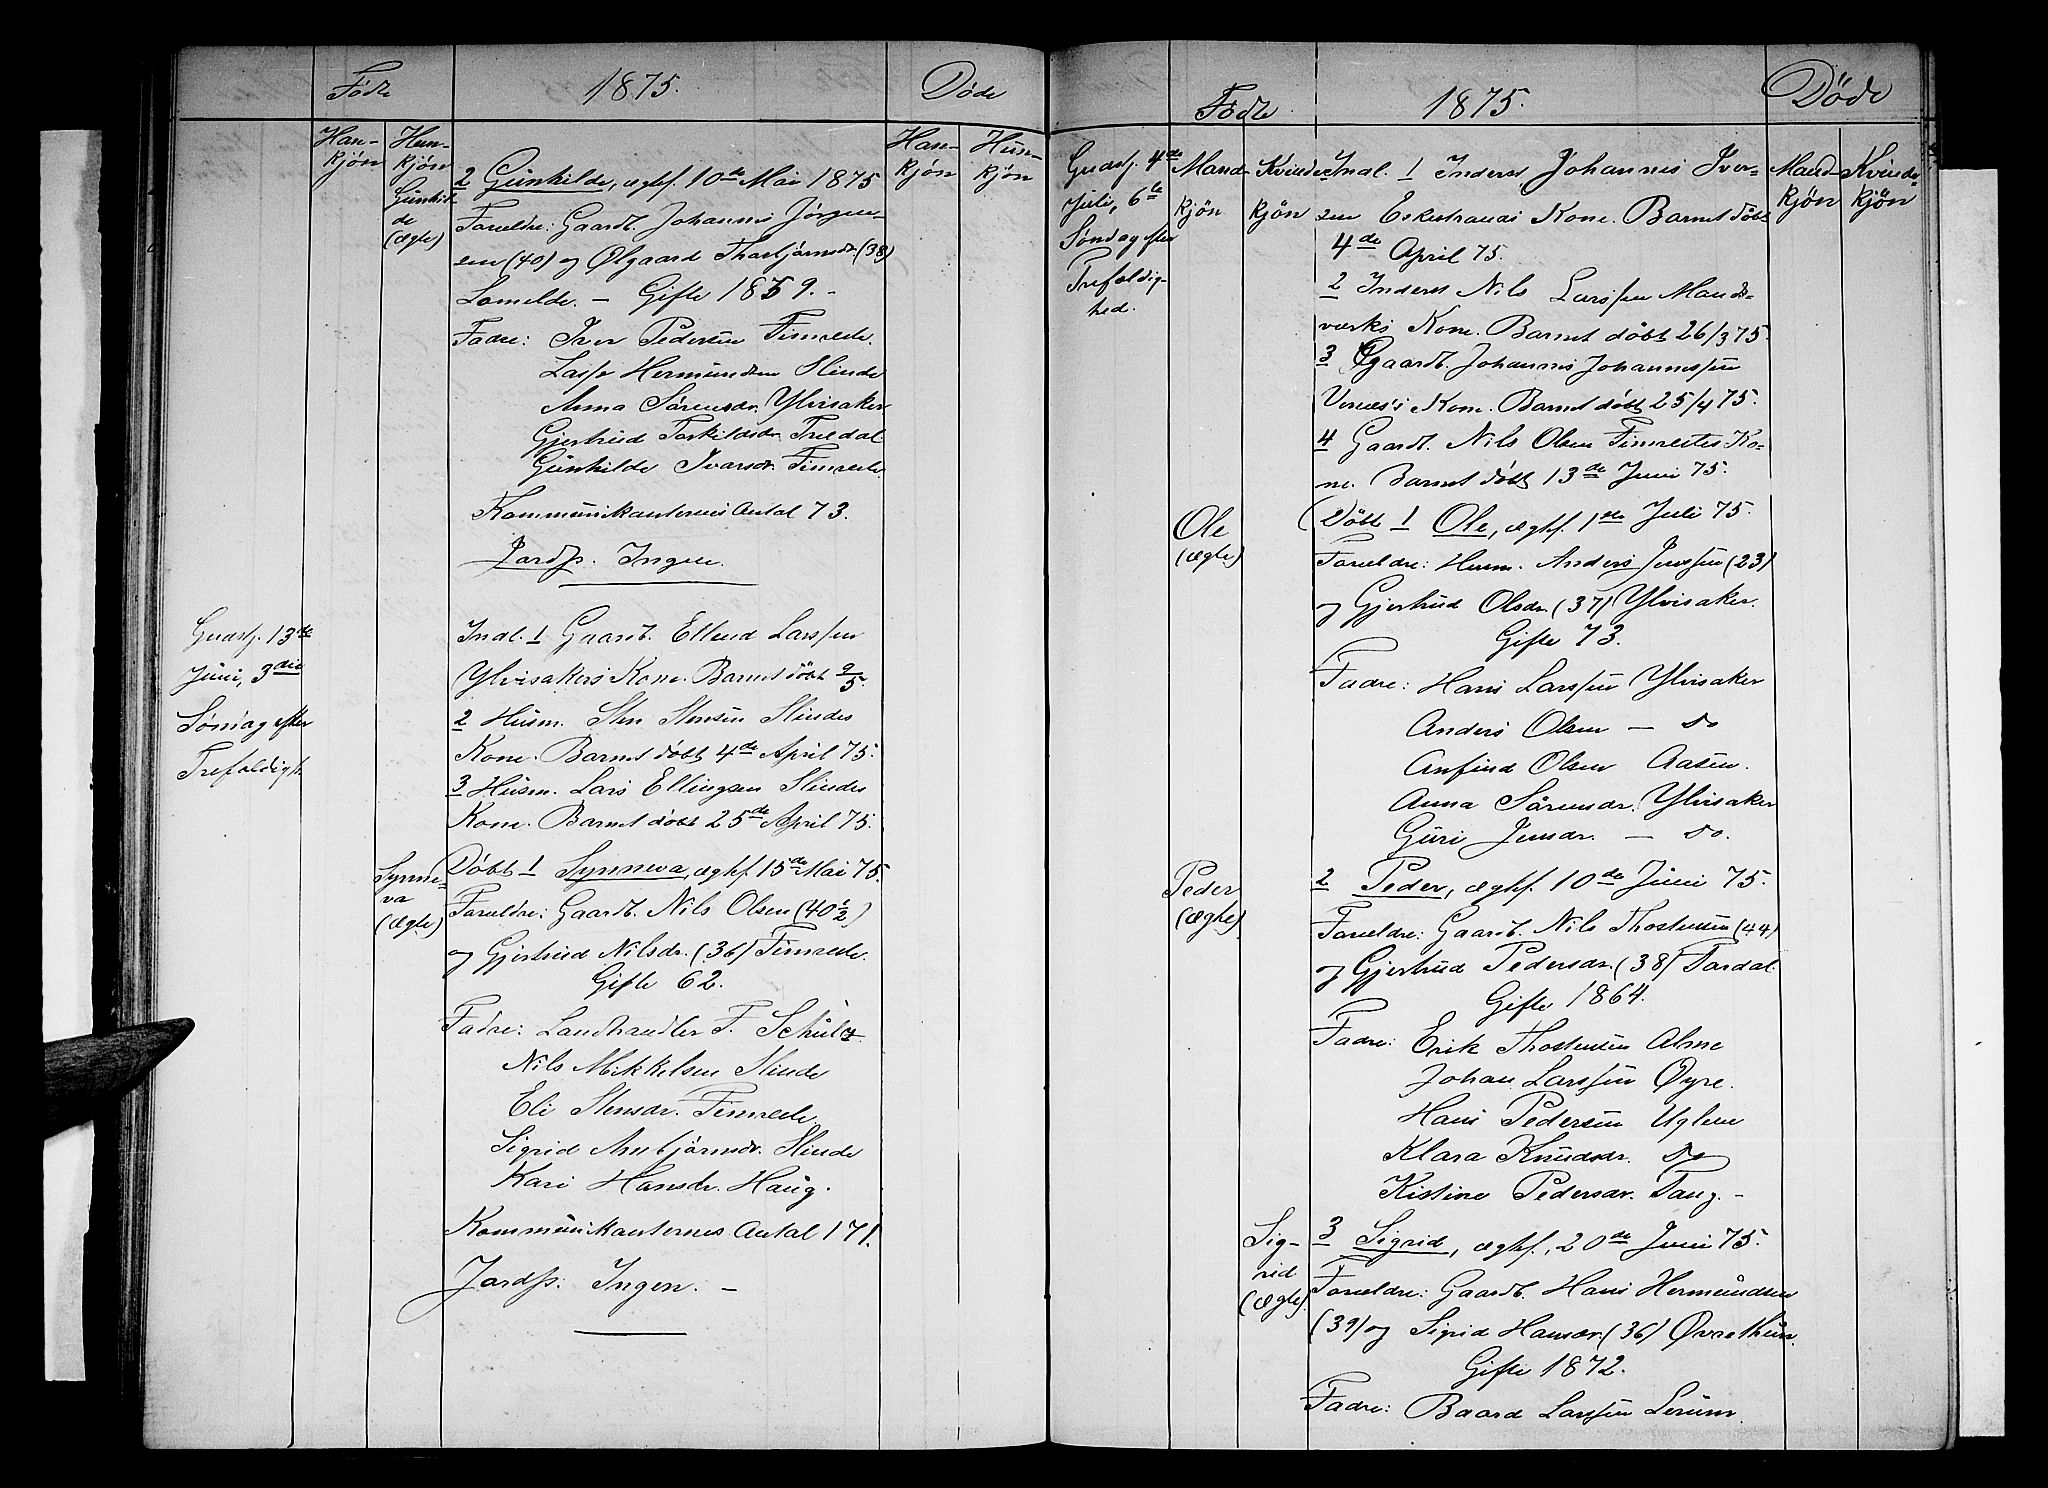 Fødte
1875.
Døde
Han-
kjøn
Hun-
kjøn
Han-
kjøn
Hun-
kjøn
Gunhil-
de
(ægte)
2 Gunhilde, ægtf. 10de Mai 1875
Forældre: Gaardb. Johannis Jørgen-
sen (40) og Ølgaard Thorbjørnsdr. (38)
Lomelde. – Gifte 1859. –
Fadre: Iver Pedersen Fimreite.
Lasse Hermundsen Slinde
Anna Sørensdr. Ylvisaker
Gjertrud Torkildsdr.
Gunhilde Ivarsdr. Fimreite.
Kommunikanternes Antal 73.
Jordfp. Ingen.
Gudstj. 13de
Juni, 3die
Søndag efter
Trefoldigh.
Indl. 1 Gaardb. Ellend Larssen
Ylvisakers Kone. Barnet døbt 9/5.
2 Husm. Sten Stensen Slindes
Kone. Barnet døbt 4de April 75.
3 Husm. Lars Ellingsen Slindes
Kone. Barnet døbt 25de April 75.
Synne-
va
(ægte)
Døbt 1 Synneva, ægtf. 15de Mai 75.
Forældre: Gaardb. Nils Olsen (40 1/2)
og Gjertrud Nilsdr. (36) Fimreite.
Gifte 62.
Fadre: Landhandler F. Schultz
Nils Mikkelsen Slinde
Eli Stensdr. Fimreite
Sigrid Anbjørnsdr. Slinde
Kari Hansdr. Haug.
Kommunikanternes Antal 171.
Jordfp. Ingen. –
Fødte
1875.
Døde
Gudstj. 4de
Juli, 6te
Søndag efter
Trefoldig-
hed.
Mand-
kjøn
Kvinde-
kjøn
Mand-
kjøn
Kvinde-
kjøn
Indl. 1 Inderst Johannis Iver-
sen Eskestrands Kone. Barnet døbt
4de April 75.
2 Inderst Nils Larssen Mands-
værks Kone. Barnet døbt 26/3 75.
3 Gaardb. Johannis Johannessen
Kone. Barnet døbt 25/4 75.
4 Gaardb. Nils Olsen Fimreites Ko-
ne. Barnet døbt 13de Juni 75.
Ole
(ægte)
Døbt 1 Ole, ægtf. 1ste Juli 75.
Forældre: Husm. Anders Jenssen (23)
og Gjertrud Olsdr. (37) Ylvisaker.
Gifte 73.
Fadre: Hans Larssen Ylvisaker
Anders Olsen – do
Anfind Olsen Aasen.
Anna Sørensdr. Ylvisaker
Guri Jensdr. – do.
Peder
(ægte)
2 Peder, ægtf. 10de Juni 75.
Forældre: Gaardb. Nils Thostensen (44)
og Gjertrud Pedersdr. (38) Tordal.
Gifte 1864.
Fadre: Erik Thostensen Alme
Johan Larssen Øyre.
Hans Pedersen Uglum
Klara Knudsdr. do
Kistine Pedersdr. Taug. –
Sig-
rid
(ægte)
3 Sigrid, ægtf., 20de Juni 75.
Forældre: Gaardb. Hans Hermundsen
(39) og Sigrid Hansdr. (36) Øvrethun.
Gifte 1872.
Fadre: Baard Larssen Lerum